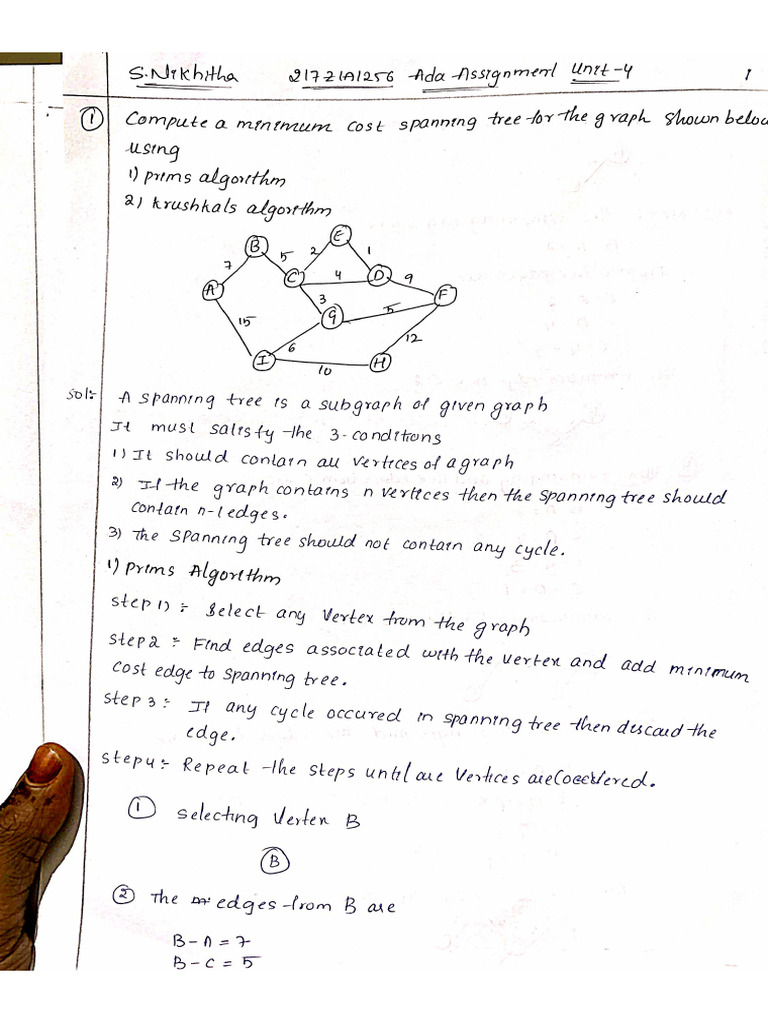 S.Nikhitha 217Z1A1256 Ada Assignment Unit-4 1
① Compute a minimum cost spanning tree for the graph shown below
using
1) prims algorithm
2) krushkals algorithm
E
B 2 1
7 5 C 4 D 9
A 3 F
15 G 5
6 12
I 10 H
Sol:- A spanning tree is a subgraph of given graph
It must satisfy the 3-conditions
1) It should contain all vertices of a graph
2) If the graph contains n vertices then the spanning tree should
contain n-1 edges.
3) The spanning tree should not contain any cycle.
1) prims Algorithm
Step 1) :- Select any Vertex from the graph
Step 2 :- Find edges associated with the vertex and add minimum
cost edge to spanning tree.
Step 3 :- If any cycle occured in spanning tree then discard the
edge.
Step 4 :- Repeat the steps until all Vertices are
① Selecting Vertex B
B
② The edges from B are
B - A = 7
B - C = 5